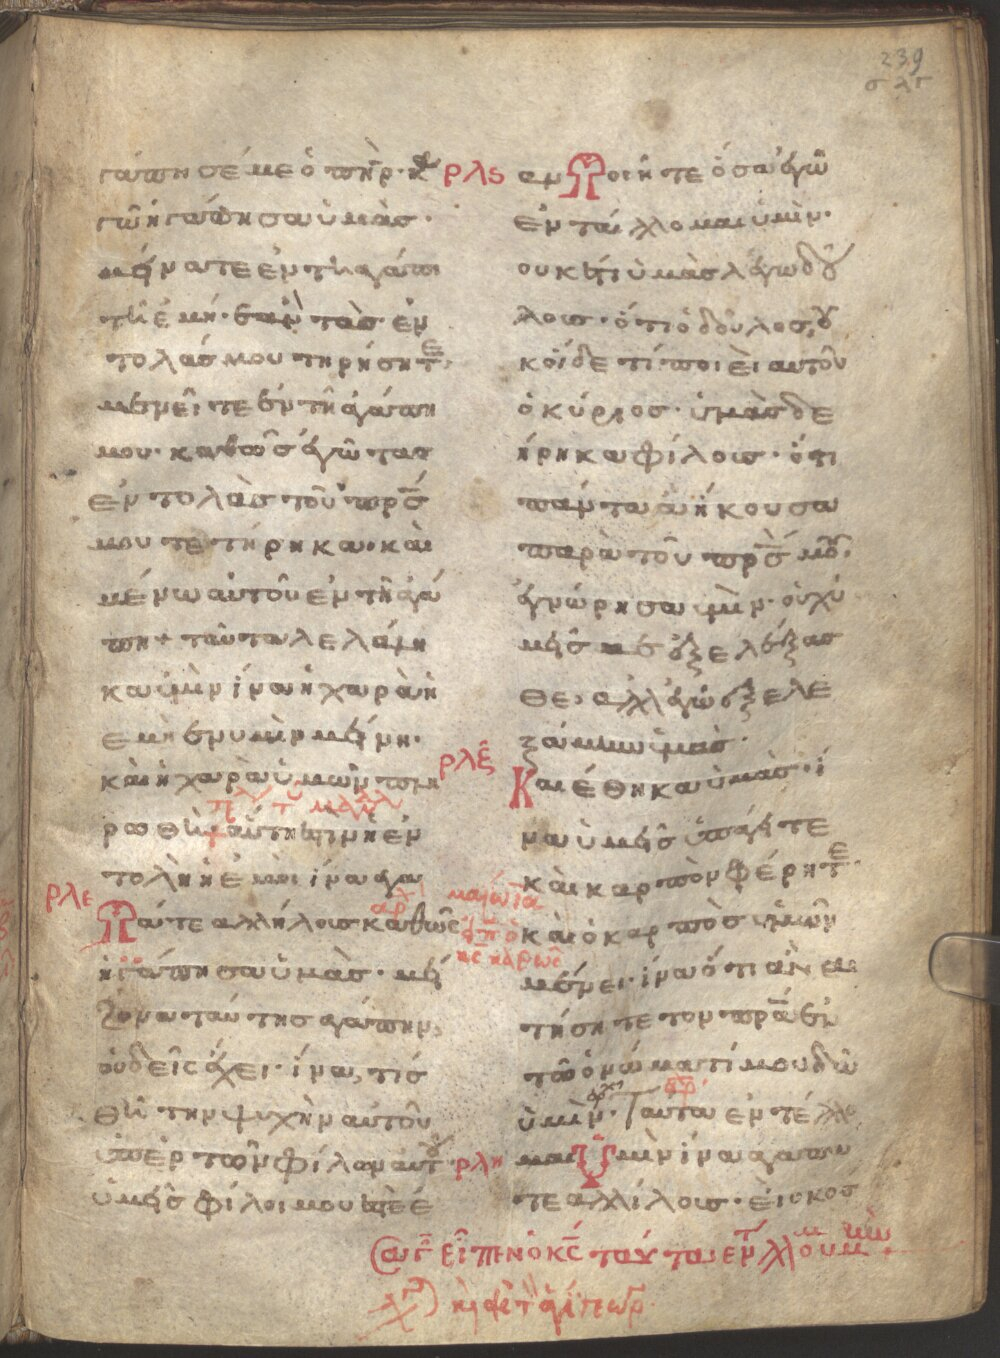 239
σλγ
γάπησέ με ὁ πηρ· κα
γὼ ἠγάπησα ὑμᾶς·
μείνατε ἐν τῆ ἀγάπη
τῆ ἐμῆ· ἐὰν τὰς ἐν
τολάς μου τηρήσητε,
μενεῖτε ἐν τῆ ἀγάπη
μου· καθὼς ἐγὼ τὰς
ἐντολὰς τοῦ πρς
μου τετήρηκα· καὶ
μένω αὐτοῦ ἐν τῆ ἀγά
πη + ταῦτα λελάλη
κα ὑμῖν ἵνα ἡ χαρὰ ἡ
ἐμὴ ἐν ὑμῖν μείνη·
καὶ ἡ χαρὰ ὑμῶν πλη
ρωθῆ αὕτη ἐστὶν ἡ ἐν
τολὴ ἡ ἐμὴ ἵνα ἀγα
ρλε
Πᾶτε ἀλλήλους καθὼς
ἠγάπησα ὑμᾶς· μεί
ζονα ταύτης ἀγάπην,
οὐδεὶς ἔχει· ἵνα, τίς
θῆ τὴν ψυχὴν αὐτοῦ
ὑπὲρ τῶν φίλων αὐτοῦ
ὑμεῖς φίλοι μου ἐστὲ ἐ
ρλς
ὰν Ποιῆτε ὅσα ἐγὼ
ἐντέλλομαι ὑμῖν·
οὐκ ἔτι ὑμᾶς λέγω δού
λους· ὅτι ὁ δοῦλος, οὐ
κ οἶδε τί ποιεῖ αὐτοῦ
ὁ κύριος· ὑμᾶς δε
ήρηκα φίλους· ὅτι
πάντα ἃ ἤκουσα
παρὰ τοῦ πρς μου·
ἐγνώρησα ὑμῖν· οὐχ ὑ
μεῖς με ἐξελέξασ
θε· ἀλλ' ἐγὼ ἐξελε
ξάμην ὑμᾶς·
ρλζ
Καὶ ἔθηκα ὑμᾶς· ἵ
να ὑμεῖς ὑπάγητε
καὶ καρπὸν φέρητε·
καὶ ὁ καρπὸς ὑμῶν
μένει· ἵνα ὅτι ἂν αἰ
τήσητε τὸν πρα ἐν
τῶ ὀνόματί μου δῶ
ὑμῖν· Ταῦτα ἐντέλλο
ρλη
μαι Ὑμῖν ἵνα ἀγαπᾶ
τε ἀλλίλους· εἰ ὁ κοσ
εἶπεν ὁ κς ταῦτα ἐντέλλομ ὑμῖν